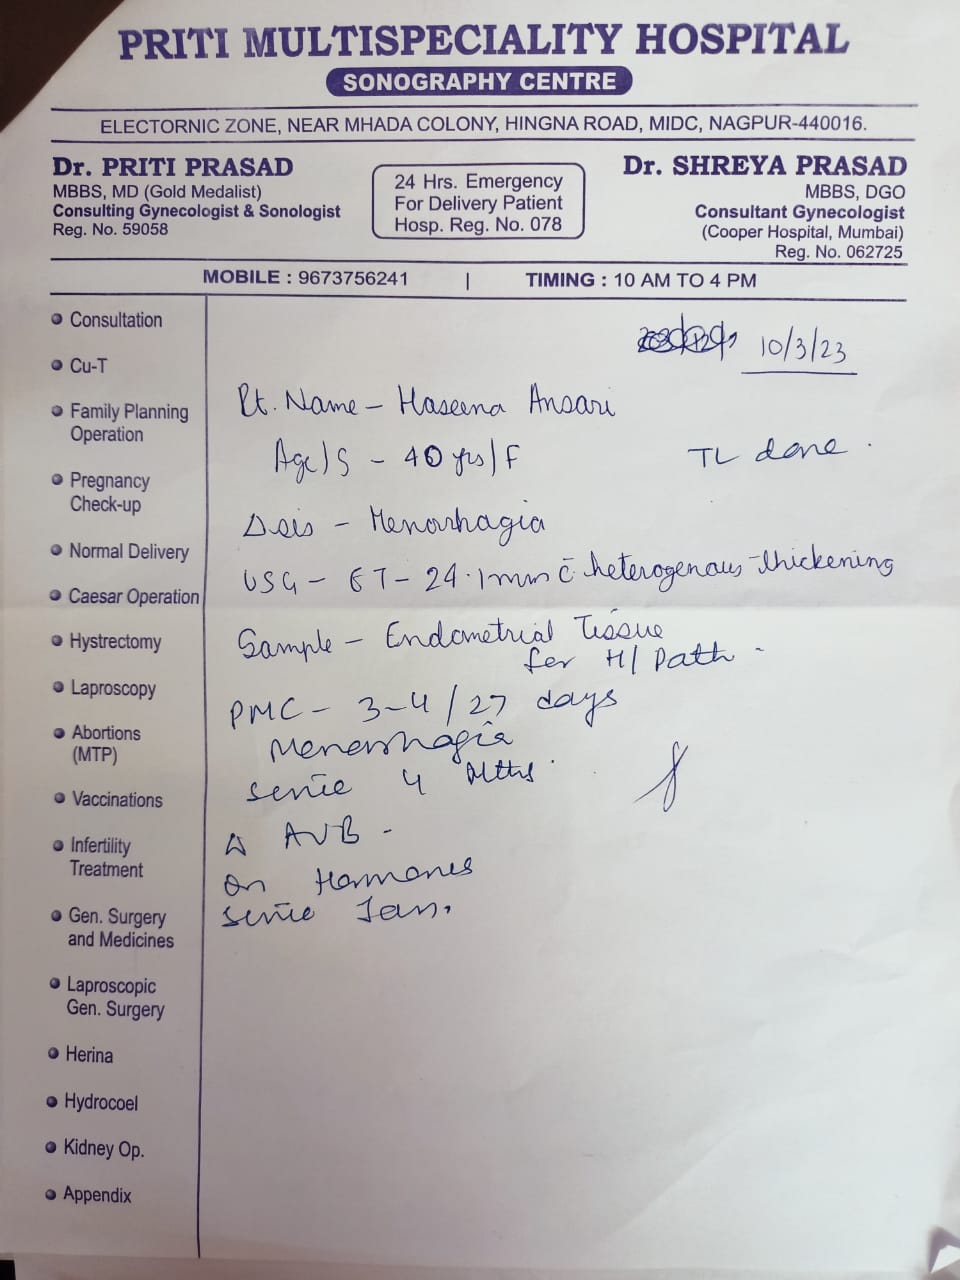 PRITI MULTISPECIALITY HOSPITAL
SONOGRAPHY CENTRE
ELECTORNIC ZONE, NEAR MHADA COLONY, HINGNA ROAD, MIDC, NAGPUR-440016.
Dr. PRITI PRASAD
MBBS, MD (Gold Medalist)
Consulting Gynecologist & Sonologist
Reg. No. 59058
24 Hrs. Emergency
For Delivery Patient
Hosp. Reg. No. 078
Dr. SHREYA PRASAD
MBBS, DGO
Consultant Gynecologist
(Cooper Hospital, Mumbai)
Reg. No. 062725
MOBILE : 9673756241 | TIMING : 10 AM TO 4 PM
Consultation
Cu-T
Family Planning
Operation
Pregnancy
Check-up
Normal Delivery
Caesar Operation
Hystrectomy
Laproscopy
Abortions
(MTP)
Vaccinations
Infertility
Treatment
Gen. Surgery
and Medicines
Laproscopic
Gen. Surgery
Herina
Hydrocoel
Kidney Op.
Appendix
10/3/23
Pt. Name - Haseena Ansari
Age/S - 40 yrs/F
TL done.
- Menorrhagia
USG - ET - 24.1mm c̄ heterogenous thickening
Sample - Endometrial Tissue
for H/Path -
PMC - 3-4/27 days
Menorrhagia
4 Mths.
Δ AUB -
On Hormones
Jan.